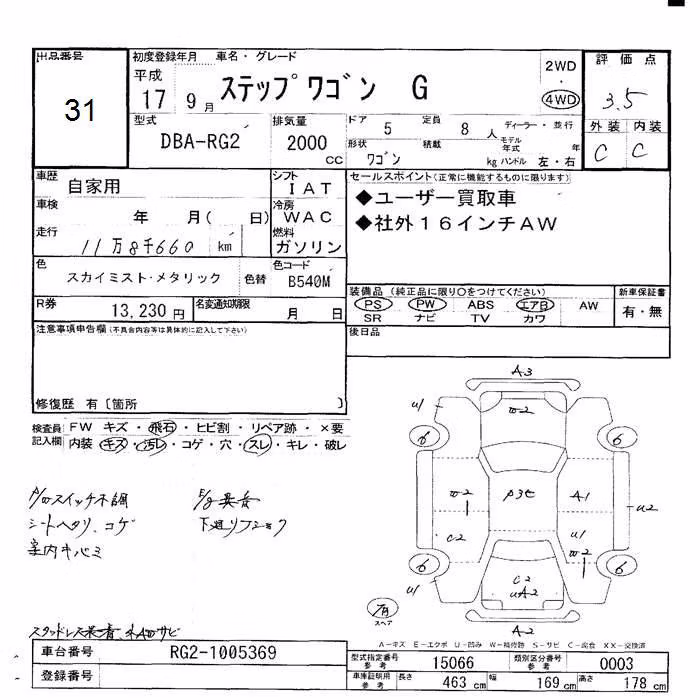 出品番号
31
初度登録年月 車名・グレード
平成
17 9月
ステップワゴン G
2WD
・
4WD
評価点
3.5
外装 内装
C C
型式
DBA-RG2
排気量
2000
CC
ドア 5 定員 8 人 ディーラー・並行
形状 ワゴン 積載 kg
モデル年式 年
ハンドル 左・右
車歴
自家用
車検
年 月( 日)
走行
11万8千660 km
シフト
IAT
冷房
WAC
燃料
ガソリン
色
スカイミスト・メタリック
色替
色コード
B540M
R券
13,230 円
名変通知期限
月 日
セールスポイント(正常に機能するものに限ります)
◆ユーザー買取車
◆社外16インチAW
装備品(純正品に限り○をつけてください)
PS PW ABS エアB AW
SR ナビ TV カワ
新車保証書
有・無
後日品
注意事項申告欄(不具合内容等は具体的に記入して下さい)
修復歴 有〔箇所 〕
検査員記入欄
FW キズ・飛石・ヒビ割・リペア跡・×要
内装・キズ・汚レ・コゲ・穴・スレ・キレ・破レ
P/Wスイッチ不調
シートヘタリ、コゲ
室内キバミ
E/g異音
下廻りフショク
スタッドレス装着
サビ
A3
W2
U1
6
6
W2
P3E
A1
U2
C2
U1
W2
6
6
U1
C2
UA2
A2
有
スペア
A-キズ E-エクボ U-凹み W-補修跡 S-サビ C-腐食 XX-交換済
車台番号
RG2-1005369
登録番号
型式指定番号
参考
15066
類別区分番号
参考
0003
車庫証明用
参考
長さ 463 cm 幅 169 cm 高さ 178 cm